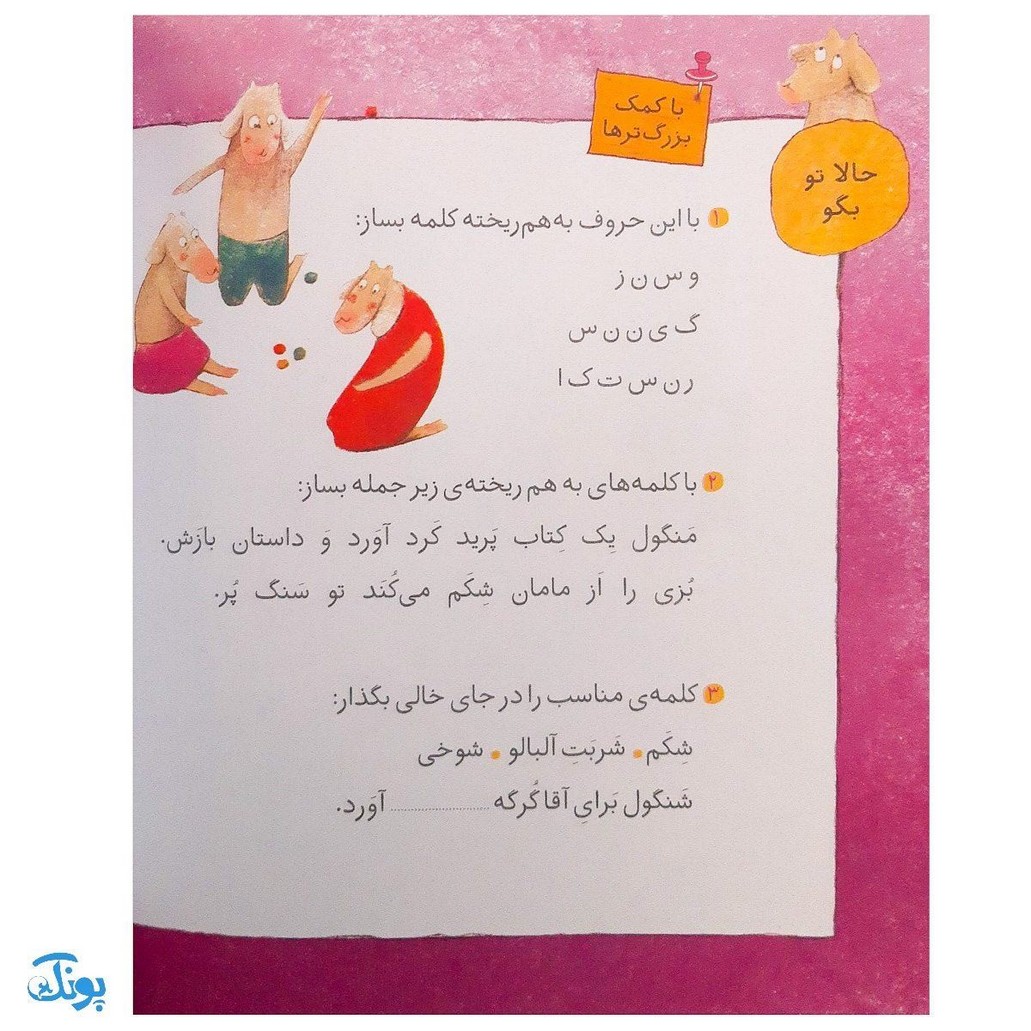 با کمک
بزرگ‌ترها
حالا تو
بگو
۱ با این حروف به‌هم‌ریخته کلمه بساز:
و س ن ز
گ ی ن ن س
ر ن س ت ک ا
۲ با کلمه‌های به هم ریخته‌ی زیر جمله بساز:
مَنگول یِک کِتاب پَرید کَرد آوَرد وَ داستان بازَش.
بُزی را اَز مامان شِکَم می‌کُنَد تو سَنگ پُر.
۳ کلمه‌ی مناسب را در جای خالی بگذار:
شِکَم • شَربَتِ آلبالو • شوخی
شَنگول بَرایِ آقا گُرگه .................... آوَرد.
پونک